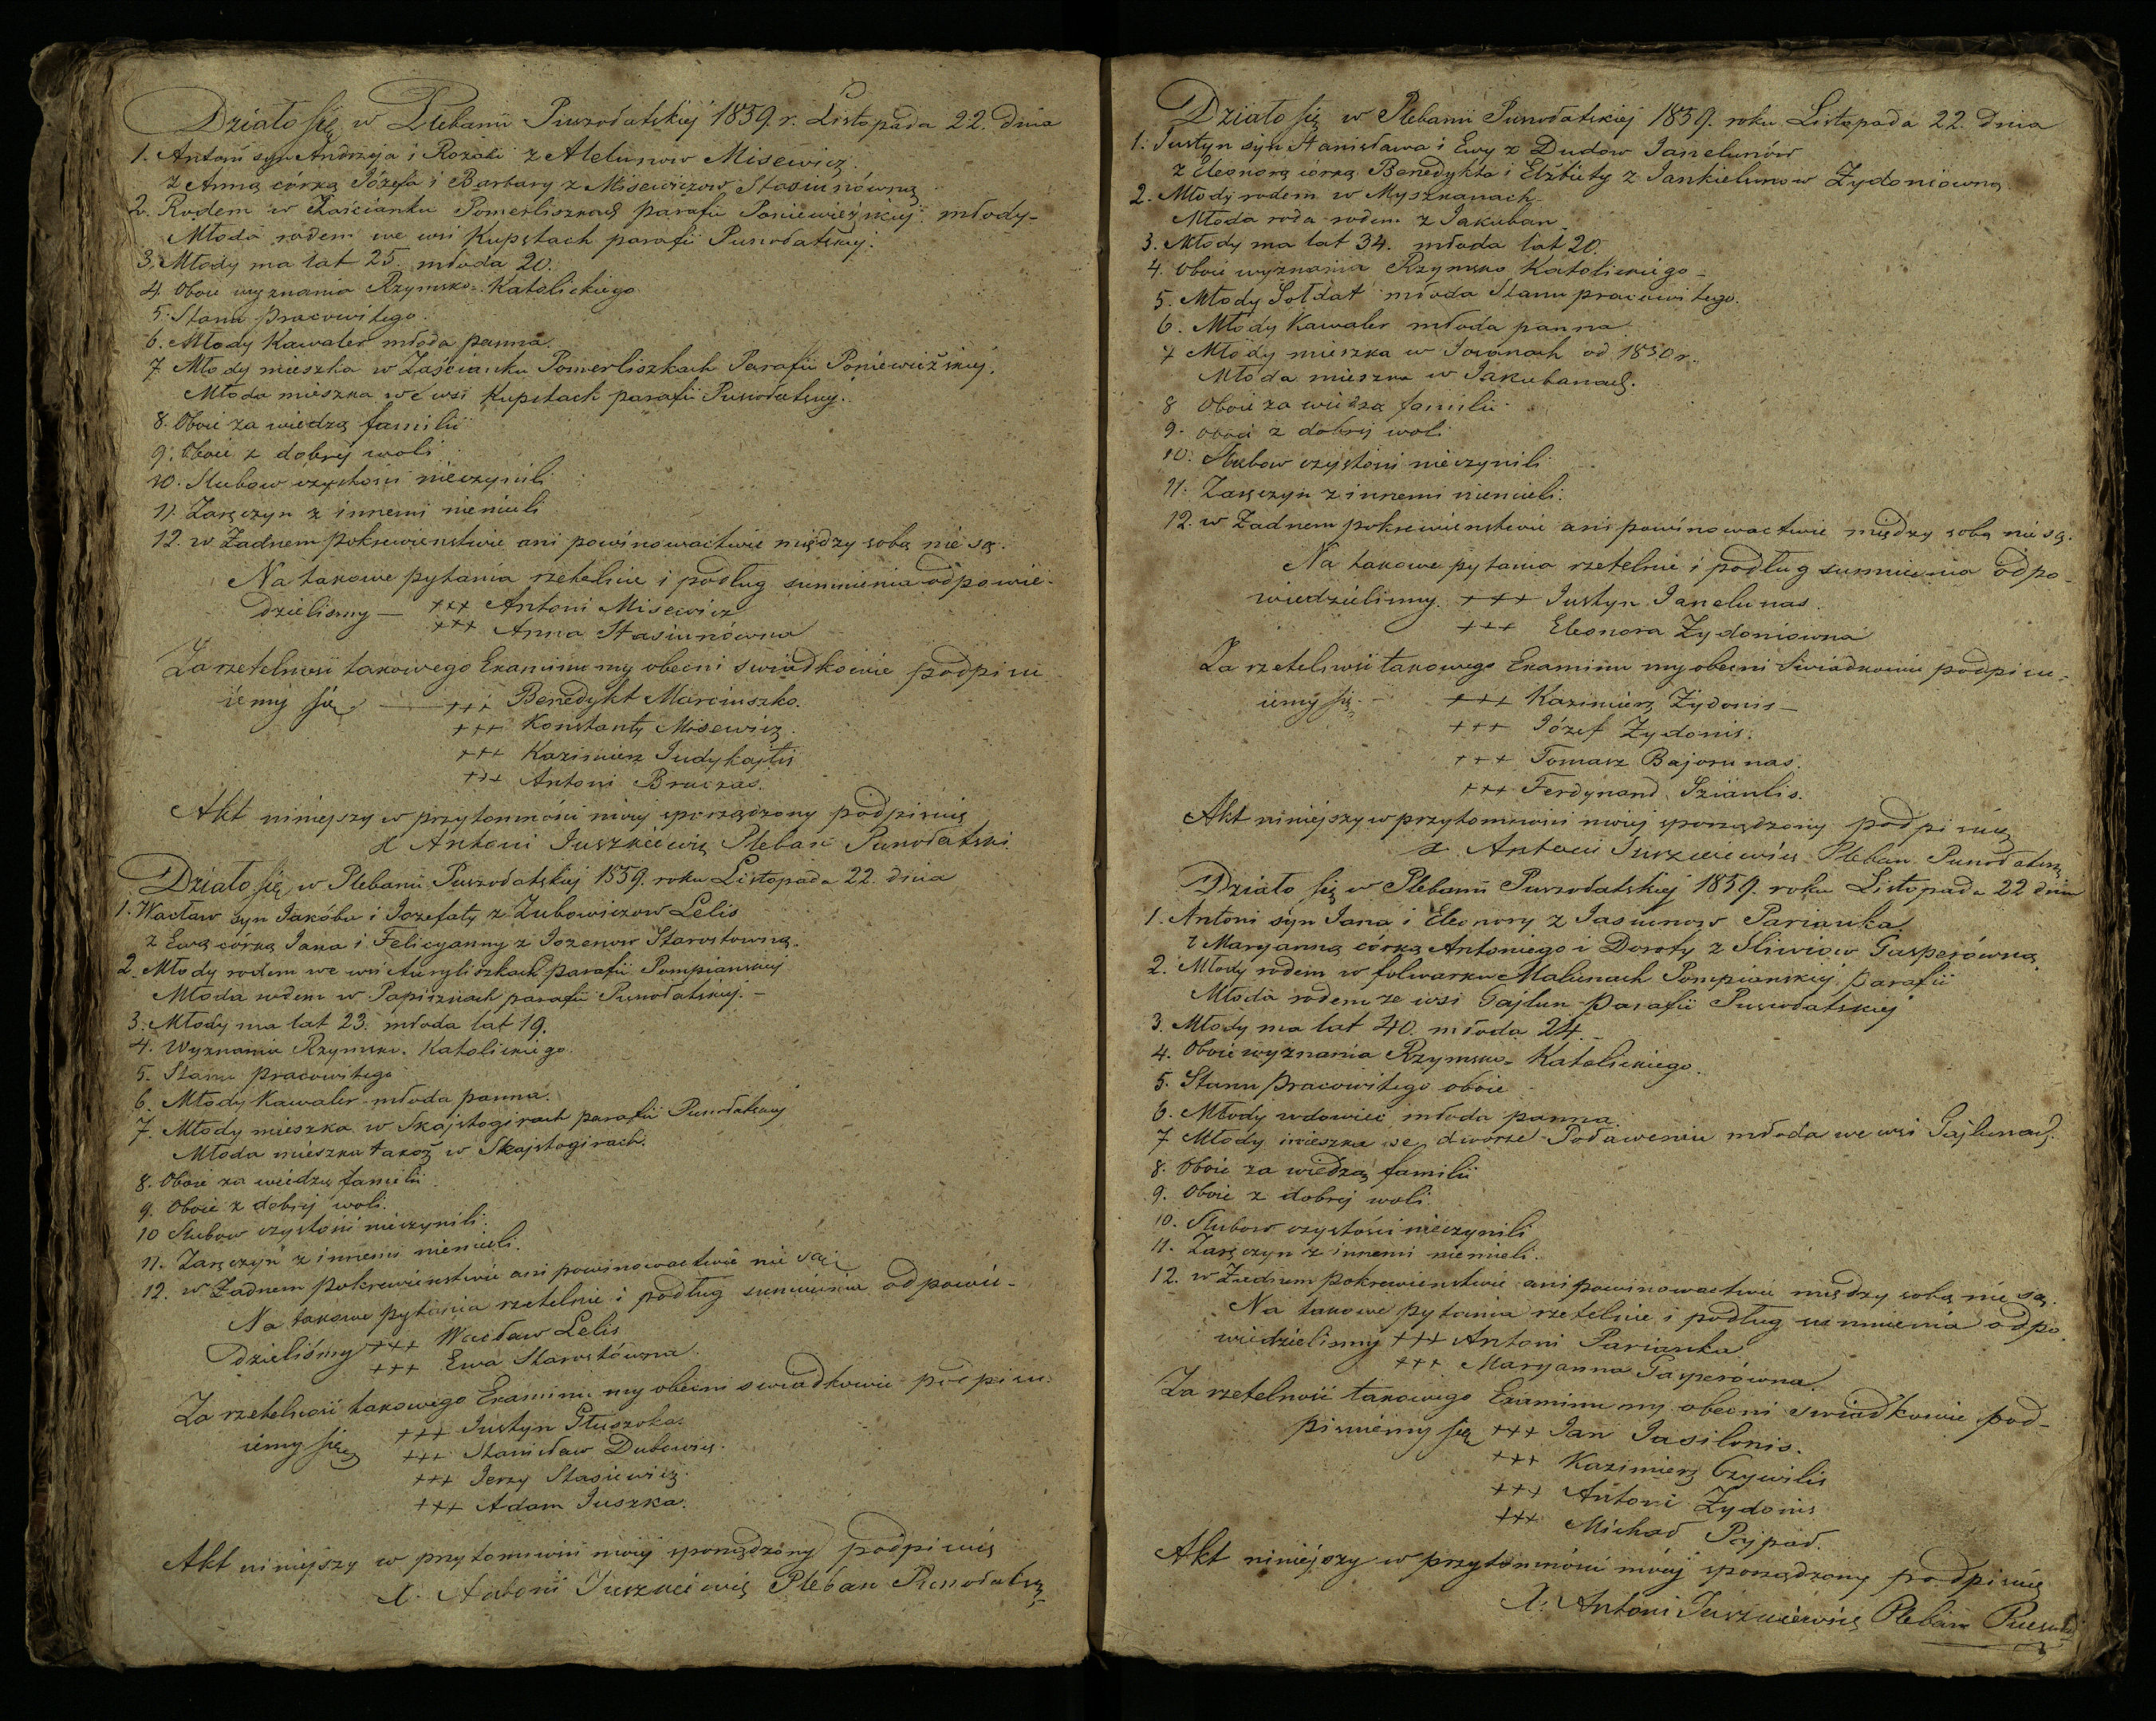 Działo się w Plebanii Puszołatskiej 1859. r. Listopada 22. dnia
1. Antoni syn Andrzeja i Rozalii z Alelunow Misewicz.
z Anną córką Józefa i Barbary z Misewiczow Stasiunówną
2. Rodem w Zaścianku Pomerliszkach parafii Poniewieżskiej młody-
Młoda rodem we wsi Kupstach parafii Puszołatskiej.
3. Młody ma lat 25. młoda 20.
4. Oboie wyznania Rzymsko-Katolickiego
5. Stanu pracowitego.
6. Młody Kawaler młoda panna.
7. Młody mieszka w Zaścianku Pomerliszkach Parafii Poniewieżskiej.
Młoda mieszka we wsi Kupstach parafii Puszołatskiej.
8. Oboie za wiedzą familii
9. Oboie z dobrej woli
10. Slubow czystości nieczynili
11. Zaręczyn z innemi niemieli
12. w Żadnem pokrewienstwie ani powinowactwie między sobą nie są.
Na takowe pytania rzetelnie i podług sumnienia odpowie-
dzielismy — +++ Antoni Misewicz
+++ Anna Stasiunówna
Za rzetelność takowego Examinu my obecni swiadkowie podpisu
iemy się — +++ Benedykt Marciuszko.
+++ Konstanty Misewicz.
+++ Kazimierz Judykajtis
+++ Antoni Bruczas.
Akt niniejszy w przytomności moiej sporządzony podpisuię
X Antoni Juszkiewicz Pleban Puszołatski.
Działo się w Plebanii Puszołatskiej 1859. roku Listopada 22. dnia
1. Wacław syn Jakóba i Jozefaty z Zubowiczow Lelis
z Ewą córką Jana i Felicyanny z Jozenow Starostowną.
2. Młody rodem we wsi Auryliszkach parafii Pompianskiej
Młoda rodem w Papisznach parafii Puszołatskiej. -
3. Młody ma lat 23. młoda lat 19.
4. Wyznania Rzymsko. Katolickiego.
5. Stanu pracowitego
6. Młody Kawaler młoda panna.
7. Młody mieszka w Skajstogirach parafii Puszołatskiej
Młoda mieszka takoż w Skajstogirach.
8. Oboie za wiedzą familii
9. Oboie z dobrej woli.
10 Slubow czystości nieczynili.
11. Zaręczyn z innemi niemieli.
12. w Żadnem pokrewienstwie ani powinowactwie nie są
Na takowe pytania rzetelnie i podług sumnienia odpowie-
dzieliśmy +++ Wacław Lelis
+++ Ewa Starostówna.
Za rzetelność takowego Examinu my obecni swiadkowie podpisu-
iemy się +++ Justyn Głuszoka.
+++ Stanisław Dubowicz.
+++ Jerzy Stasiewicz.
+++ Adam Juszka.
Akt niniejszy w przytomności moiej sporządzony podpisuię
X. Antoni Juszkiewicz Pleban Puszołatski
Działo się w Plebanii Puszołatskiej 1859. roku Listopada 22. dnia
1. Justyn syn Stanisława i Ewy z Dudow Janelunów
z Eleonorą córką Benedykta i Elżbiety z Jankielunow Zydoniowną
2. Młody rodem w Myszkanach-
Młoda roda rodem z Jakuban
3. Młody ma lat 34. młoda lat 20.
4. Oboie wyznania Rzymsko Katolickiego -
5. Młody Sołdat młoda Stanu pracowitego.
6. Młody Kawaler młoda panna
7 Młody mieszka w Jowanach od 1850 r.
Młoda mieszka w Jakubanach.
8 Oboie za wiedzą familii
9. Oboie z dobrej woli
10. Slubow czystości nieczynili
11. Zaręczyn z innemi niemieli.
12. w Żadnem pokrewienstwie ani powinowactwie między sobą nie są.
Na takowe pytania rzetelnie i podług sumnienia odpo-
wiedzielismy. +++ Justyn Janelunas.
+++ Eleonora Zydoniowna
Za rzetelność takowego Examinu my obecni Swiadkowie podpisu-
iemy się - +++ Kazimierz Żydonis —
+++ Józef Zydonis.
+++ Tomasz Bajorunas.
+++ Ferdynand Sziaulis.
Akt niniejszy w przytomności moiej sporządzony podpisuię
X. Antoni Juszkiewicz Pleban Puszołatski
Działo się w Plebanii Puszołatskiej 1859. roku Listopada 22 dnia
1. Antoni syn Jana i Eleonory z Jasiunow Parianka.
z Maryanną córką Antoniego i Doroty z Sliwiow Gasperówną.
2. Młody rodem w folwarku Malunach Pompianskiej parafii
Młoda rodem ze wsi Gajlun Parafii Puszołatskiej
3. Młody ma lat 40. młoda 24. -
4. Oboie wyznania Rzymsko- Katolickiego.
5. Stanu pracowitego oboie
6. Młody wdowiec młoda panna.
7 Młody mieszka we dworze Poławeniu młoda we wsi Gajlunach.
8. Oboie za wiedzą familii
9. Oboie z dobrej woli
10. Slubow czystości nieczynili
11. Zaręczyn z innemi niemieli.
12. w Żadnem pokrewienstwie ani powinowactwie między sobą nie są.
Na takowe pytania rzetelnie i podług sumnienia odpo
wiedzielismy +++ Antoni Parianka
+++ Maryanna Gasperówna.
Za rzetelność takowego Examinu my obecni swiadkowie pod-
pisuiemy się +++ Jan Jasilonis.
+++ Kazimierz Czywilis
+++ Antoni Zydonis
+++ Michał Pejpał.
Akt niniejszy w przytomności moiej sporządzony podpisuię
X. Antoni Juszkiewicz Pleban